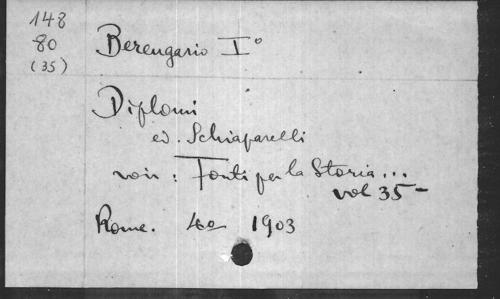 148
80
(35)
Berengario I°
Diplomi
ed. Schiaparelli
voir : Fonti per la Storia...
vol 35 -
Rome. 4° 1903